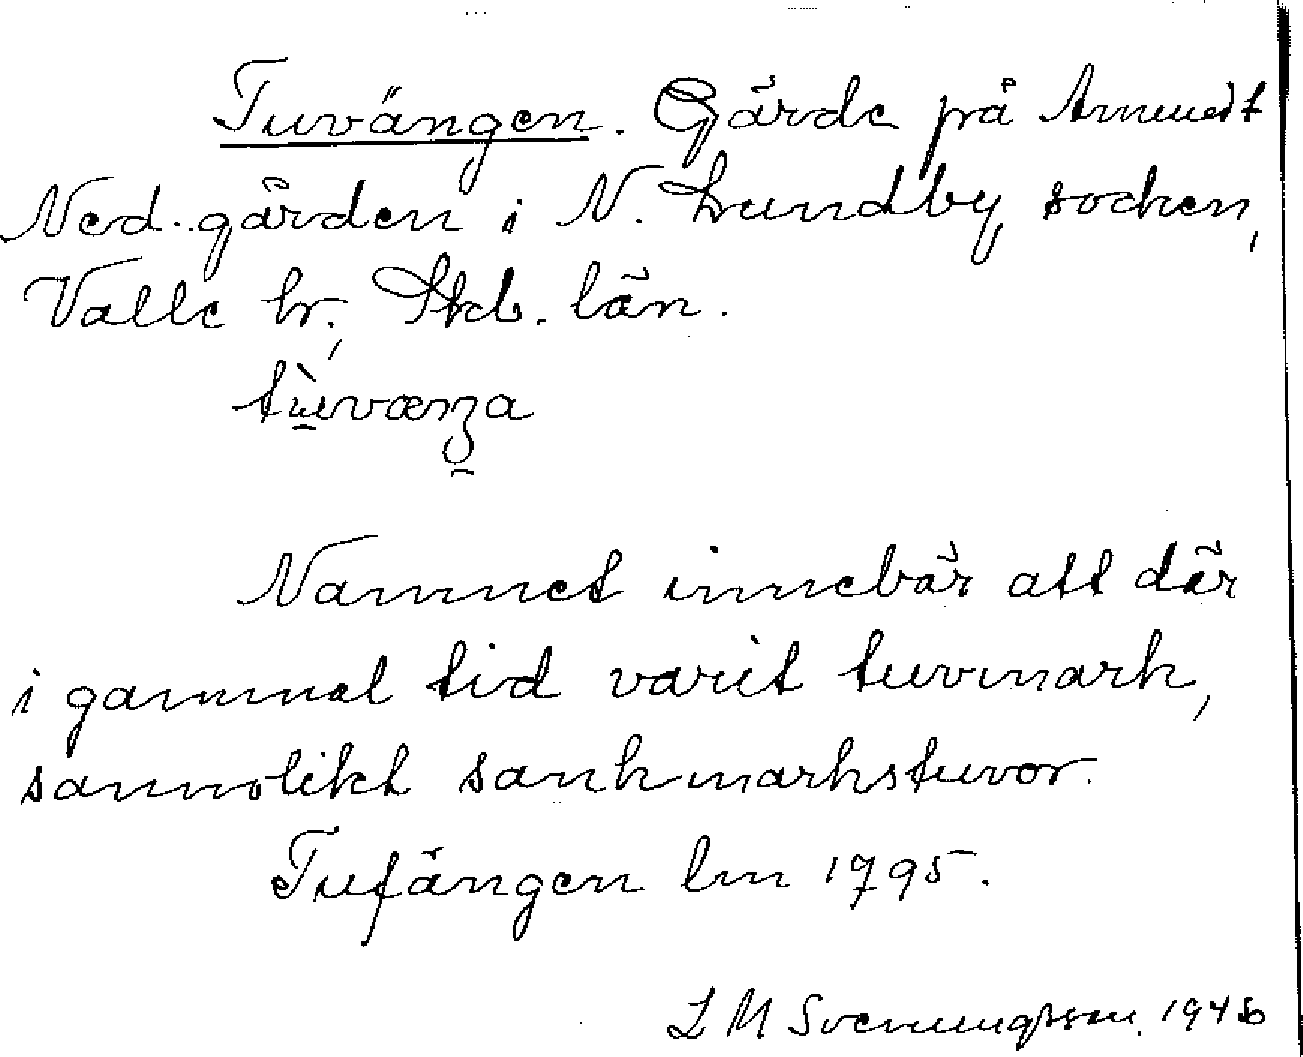 Tuvängen. Gärde på Amundt
Ned.gården i N. Lundby socken,
Valle hr, Skb. län.
tùvæŋa
Namnet innebär att där
i gammal tid varit tuvmark,
sannolikt sankmarkstuvor.
Tufängen lm 1795.
L M Svenungsson. 1946